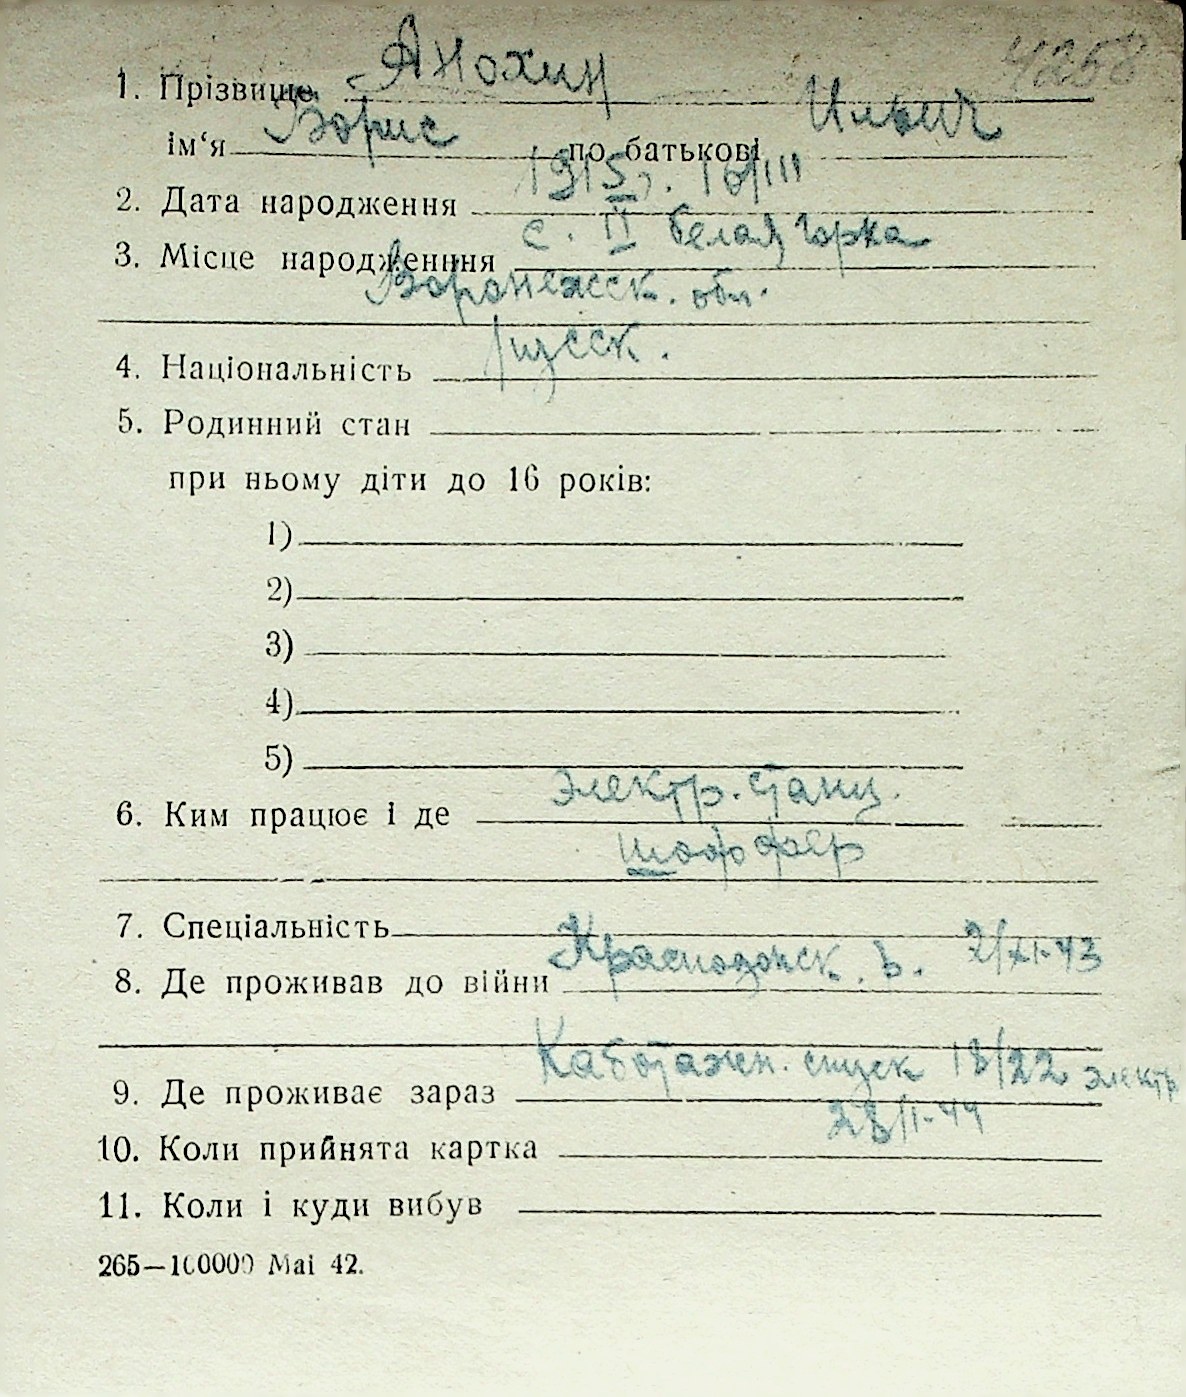 4258
1. Прізвище Анохин
ім‘я Борис по батькові Ильич
2. Дата народження 1915 г. 16/III
3. Місце народженння с. II белая горка
Воронежск. обл.
4. Національність русск.
5. Родинний стан
при ньому діти до 16 років:
1)
2)
3)
4)
5)
6. Ким працює і де электр. станц.
шоффер
7. Спеціальність
8. Де проживав до війни 2/XI-43
9. Де проживає зараз Каботажн. спуск 18/22 электр
10. Коли прийнята картка 28/II-44
11. Коли і куди вибув
265—100000 Mai 42.